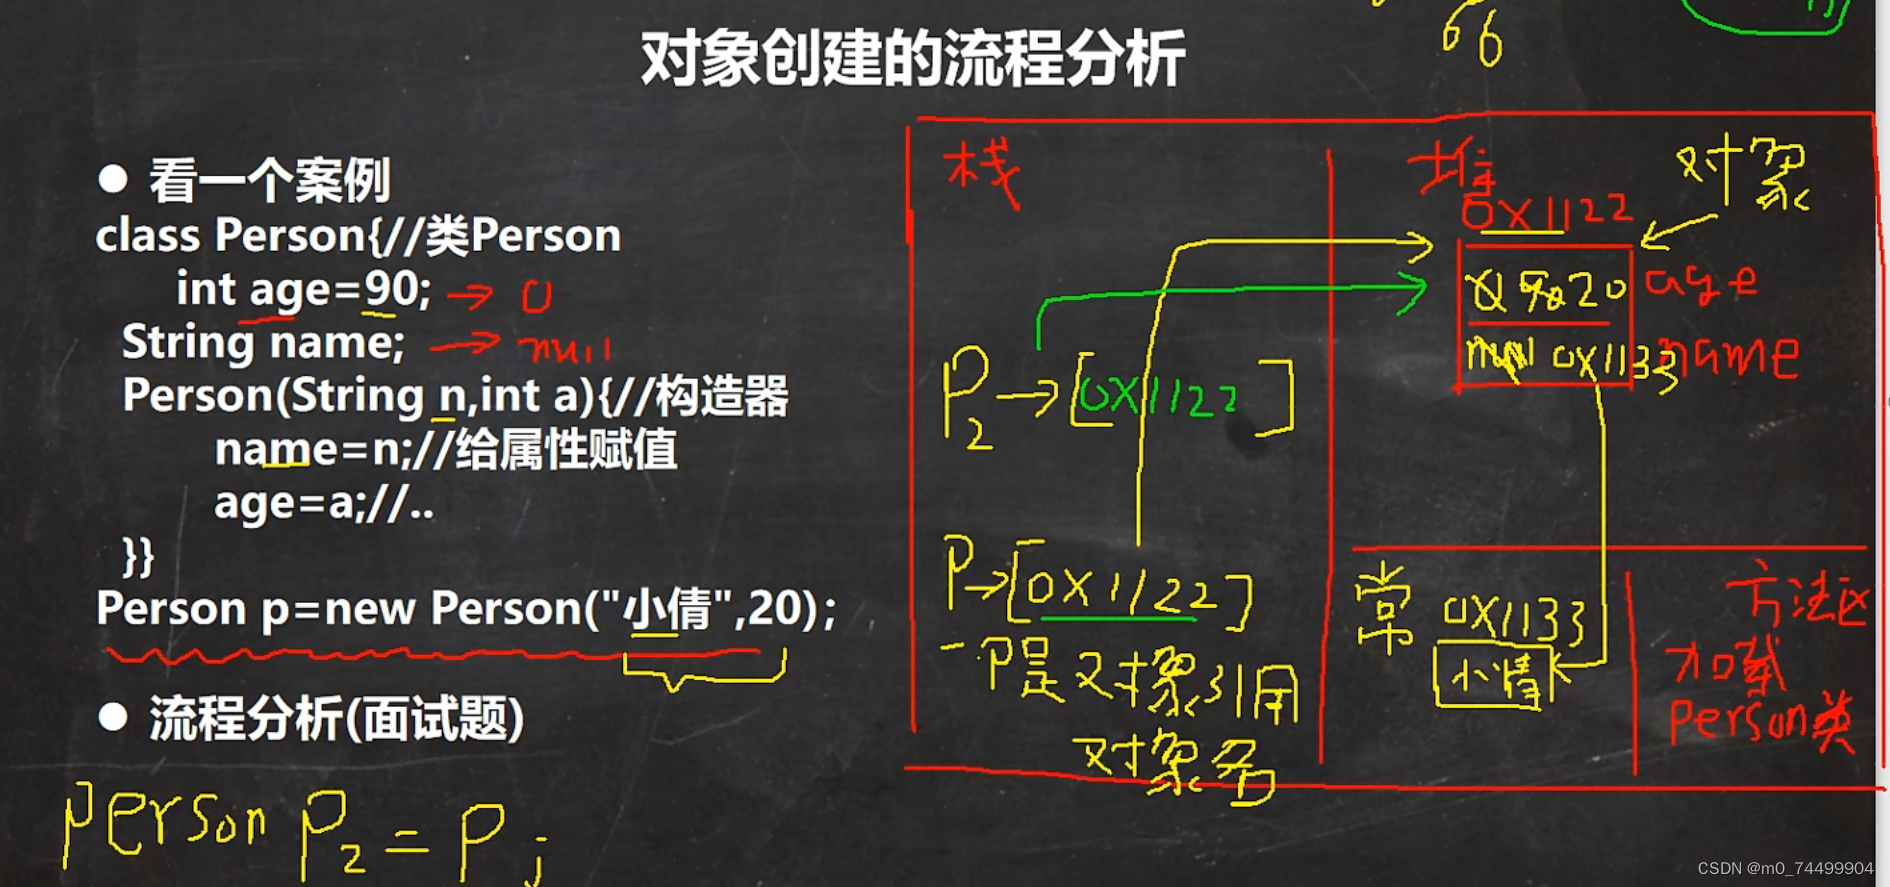 66
对象创建的流程分析
● 看一个案例
class Person{//类Person
int age=90; → 0
String name; → null
Person(String n,int a){//构造器
name=n;//给属性赋值
age=a;//..
}}
Person p=new Person("小倩",20);
● 流程分析(面试题)
Person P2 = P;
栈
P2→[0X1122]
P→[0X1122]
-P是对象引用
对象名
堆
对象
0X1122
0 90 20 age
null 0X1133 name
常
0X1133
小倩
方法区
加载
Person类
CSDN @m0_74499904